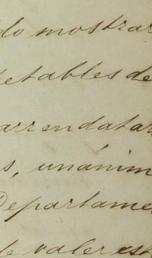 do mostrar
etables de
arrendatar
s, unánim
Departame
de valer est